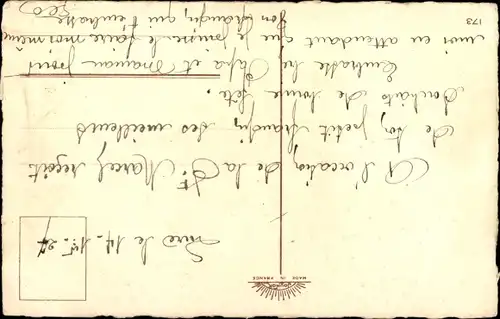 le 14-1-27
A l'occasion de la St Marcel reçoit
de ton petit frangin, ses meilleurs
souhaits de bonne fête.
Embrasse bien Papa et Maman pour
moi en attendant que je puisse le faire moi-même
Ton frangin, qui t'embrasse
Léo
MADE IN FRANCE
173